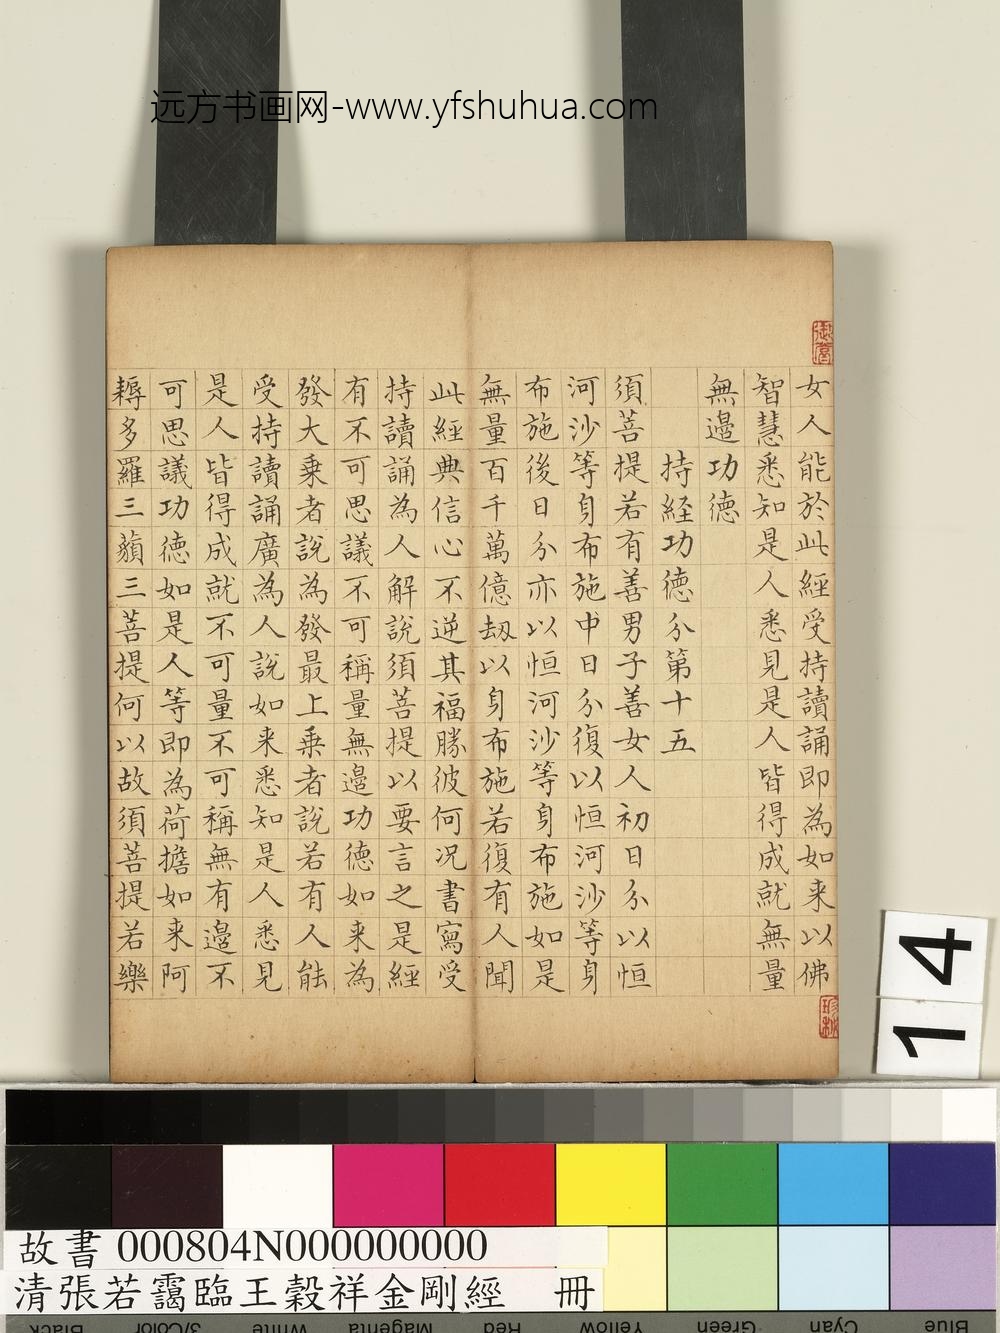 远方书画网-www.yfshuhua.com
女人能於此經受持讀誦即為如来以佛
智慧悉知是人悉見是人皆得成就無量
無邊功德
持經功德分第十五
須菩提若有善男子善女人初日分以恒
河沙等身布施中日分復以恒河沙等身
布施後日分亦以恒河沙等身布施如是
無量百千萬億劫以身布施若復有人聞
此經典信心不逆其福勝彼何况書寫受
持讀誦為人解說須菩提以要言之是經
有不可思議不可稱量無邊功德如来為
發大乗者說為發最上乗者說若有人能
受持讀誦廣為人說如来悉知是人悉見
是人皆得成就不可量不可稱無有邊不
可思議功德如是人等即為荷擔如来阿
耨多羅三藐三菩提何以故須菩提若樂
14
故書 000804N000000000
清張若靄臨王穀祥金剛經 冊
Black
3/Color
White
Magenta
Red
Yellow
Green
Cyan
Blue